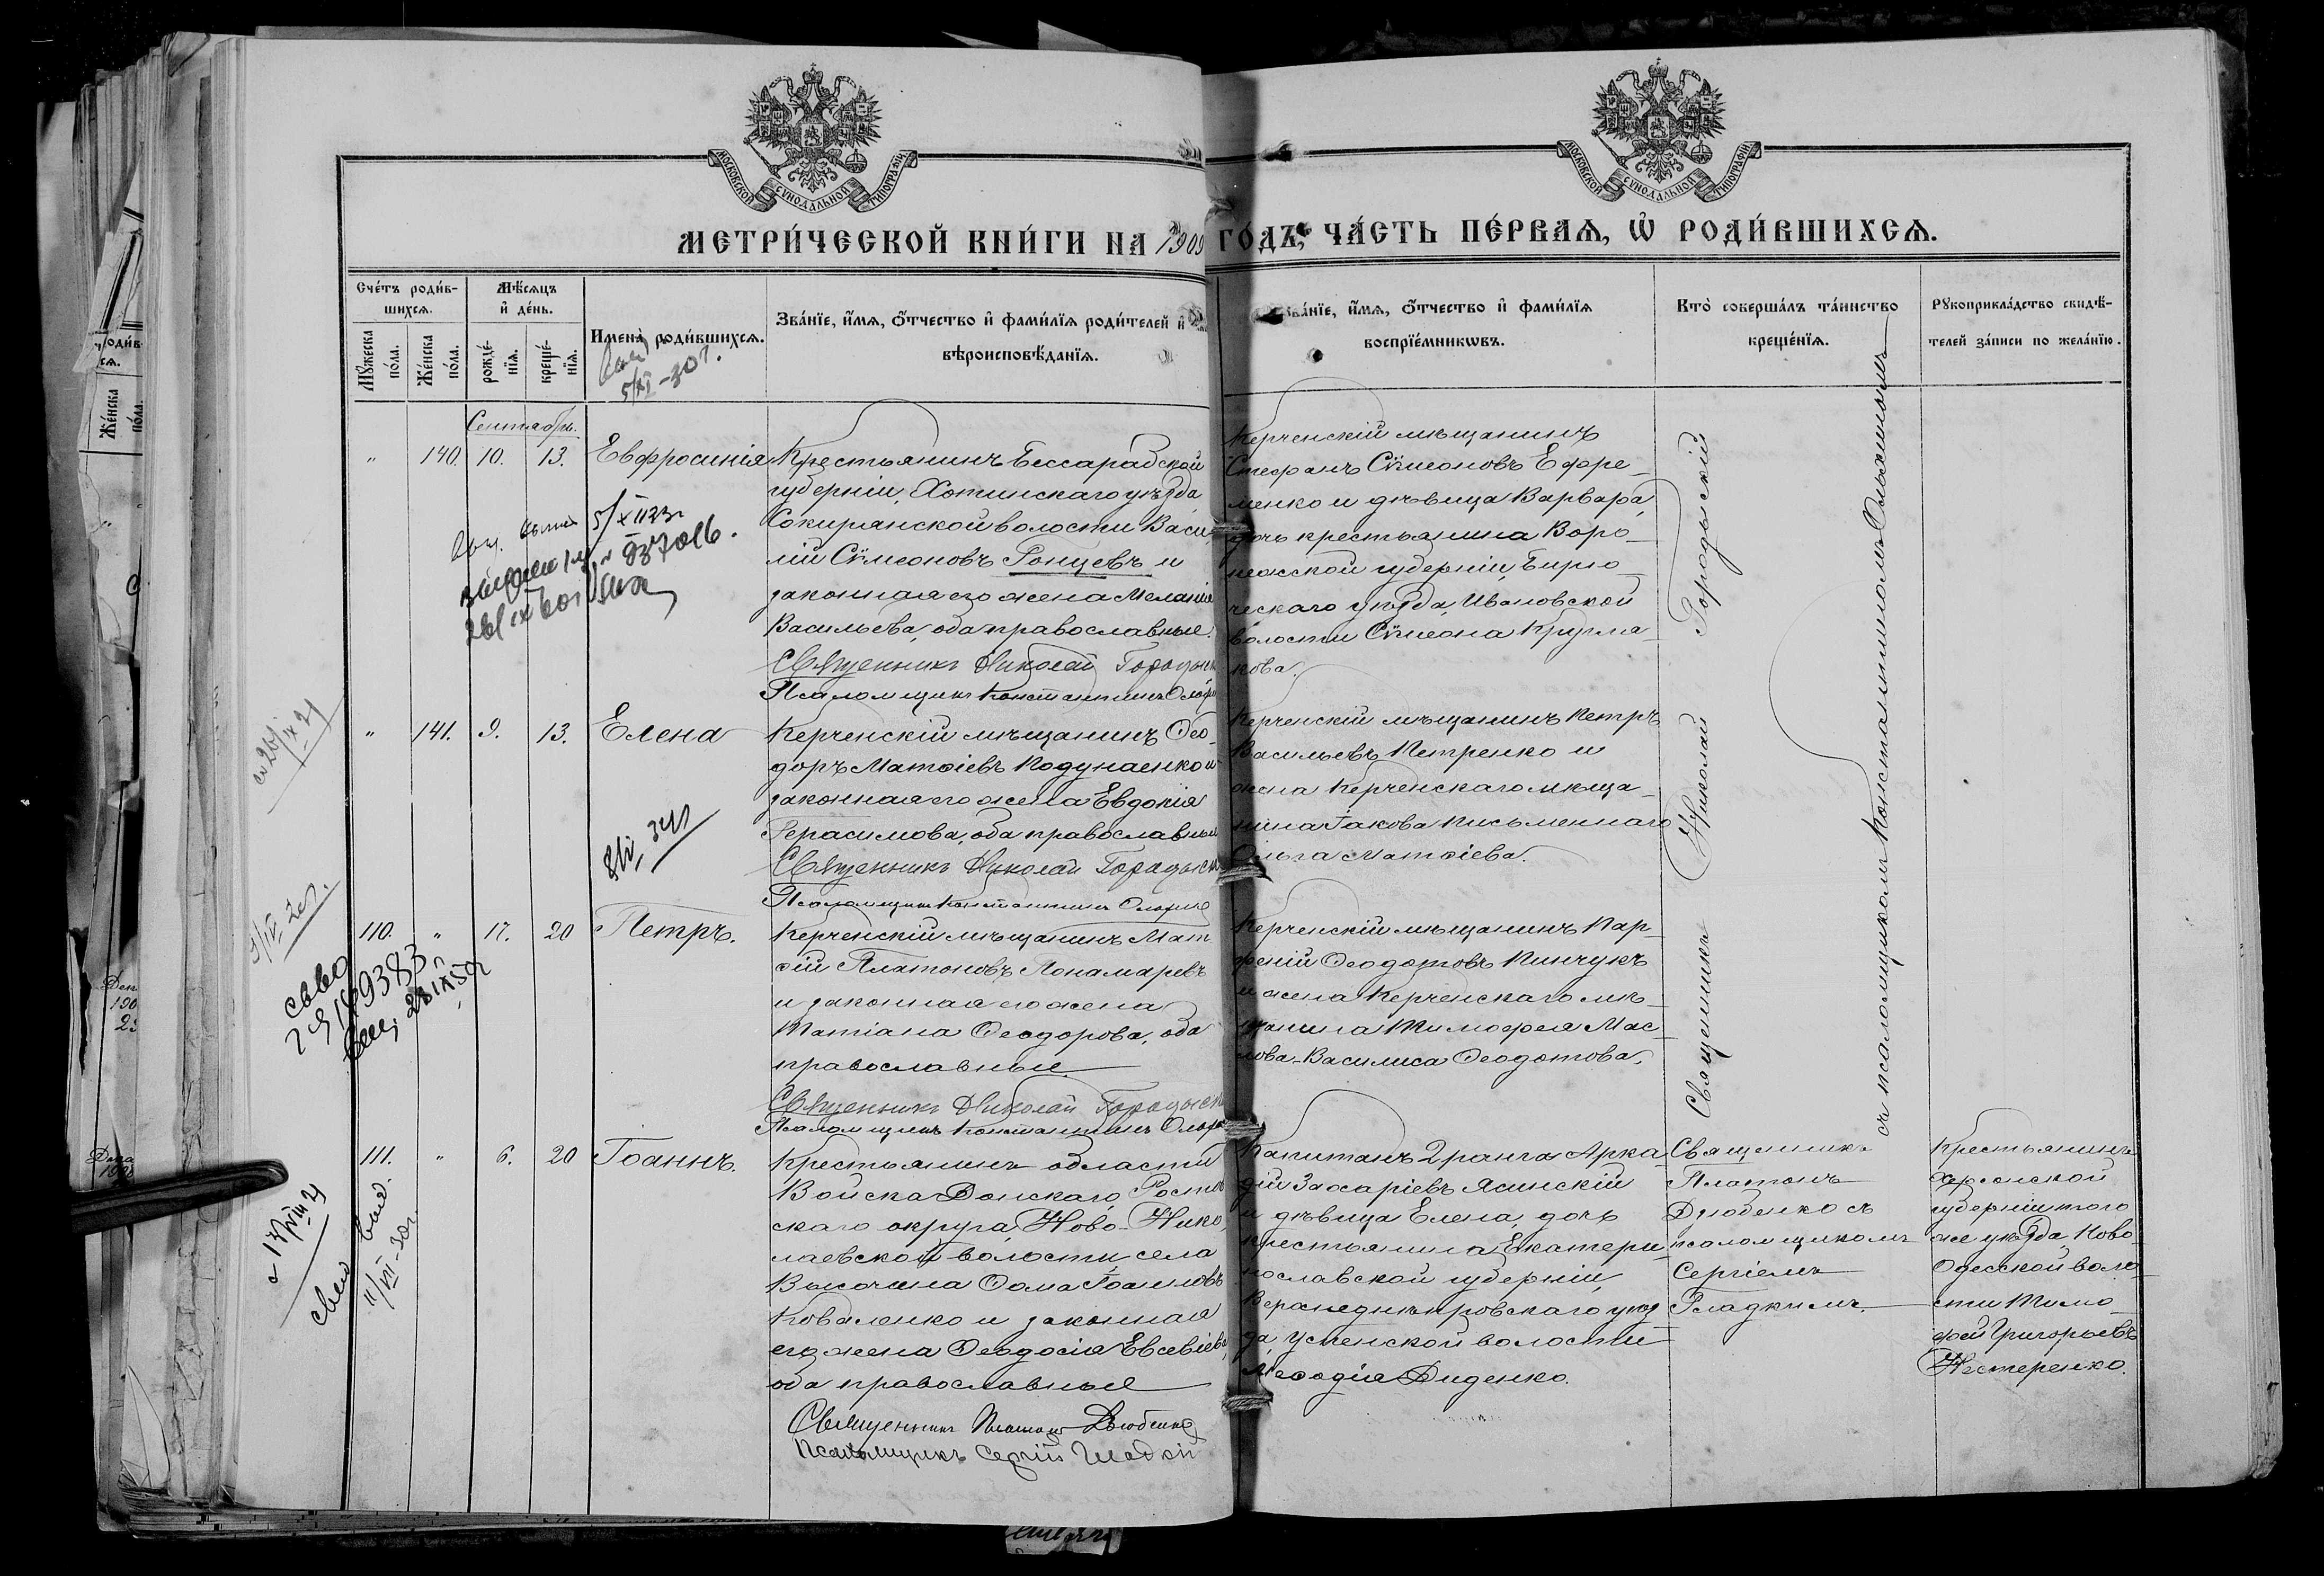 МОСКОВСКОЙ СѴНОДАЛЬНОЙ ТИПОГРАФІИ
МОСКОВСКОЙ СѴНОДАЛЬНОЙ ТИПОГРАФІИ
МЕТРИ́ЧЕСКОЙ КНИ́ГИ НА 1909 ГО́ДЪ, ЧА́СТЬ ПЕ́РВАѦ, Ѡ҆ РОДИ́ВШИХСѦ.
Сче́тъ роди́в-
шихсѧ.
Мꙋ́жеска по́ла.
Же́нска по́ла.
Мѣ́сѧцъ
и҆ де́нь.
рожде́нїѧ.
креще́нїѧ.
Имена̀ роди́вшихсѧ.
Зва́нїе, и҆́мѧ, ѻ҆́тчество и҆ фами́лїѧ роди́телей и҆
вѣроисповѣ́данїѧ.
Зва́нїе, и҆́мѧ, ѻ҆́тчество и҆ фами́лїѧ
воспрїе́мникѡвъ.
Кто̀ соверша́лъ та́инство
креще́нїѧ.
Рꙋкоприкла́дство свидѣ́-
телей за́писи по жела́нїю.
5/XI-30г.
Сентябрь.
" 140. 10. 13. Евфросинія
Крестьянинъ Бессарабской
губерніи, Хотинскаго уѣзда,
Сокирянской волости Васи-
лій Сѵмеоновъ Гонцевъ и
законная его жена Меланія
Васильева, оба православные.
Священникъ Николай Городыск
Псаломщикъ Константинъ
Керченскій мѣщанинъ
Стефанъ Сѵмеоновъ Ефре-
менко и дѣвица Варвара,
дочь крестьянина Воро-
нежской губерніи, Бирю-
ческаго уѣзда, Ивановской
волости Сѵмеона Кругля-
кова.
Священникъ Николай Городыскій
съ псаломщикомъ Константиномъ
" 141. 9. 13. Елена
Керченскій мѣщанинъ Ѳео-
доръ Матѳіевъ Кодунаенко и
законная его жена Евдокія
Герасимова, оба православные
Священникъ Николай Городыск
Псаломщикъ Константинъ
Керченскій мѣщанинъ Петръ
Васильевъ Петренко и
жена Керченскаго мѣща-
нина Іакова Письменнаго
Ольга Матѳіева.
110. " 17. 20 Петръ.
Керченскій мѣщанинъ Мат
ѳій Платоновъ Понамаревъ
и законная его жена
Татіана Ѳеодорова, оба
православные
Священникъ Николай Городыск
Псаломщикъ Константинъ
Керченскій мѣщанинъ Пар-
ѳеній Ѳеодотовъ Пинчукъ
и жена Керченскаго мѣ-
щанина Тимофея Мас-
лова - Василиса Ѳеодотова.
111. " 6. 20 Іоаннъ.
Крестьянинъ области
Войска Донскаго, Ростов
скаго округа, Ново-Нико
лаевской волости, села
Ѳома Іоанновъ
Коваленко и законная
его жена Ѳеодосія Евсевіева,
оба православные
Священникъ Платонъ Дзюбенко
Псаломщикъ Сергій Гладкій
Капитанъ 2 ранга Арка-
дій Захаріевъ Ясинскій
и дѣвица Елена, дочь
крестьянина Екатери-
нославской губерніи,
Верхнеднѣпровскаго уѣз
да, Успенской волости
Меѳодія Диденко.
Священникъ
Платонъ
Дзюбенко съ
псаломщикомъ
Сергіемъ
Гладкимъ.
Крестьянинъ
Херсонской
губерніи того
же уѣзда, Ново-
Одесской воло-
сти Тимо-
фей Григорьевъ
Нестеренко.